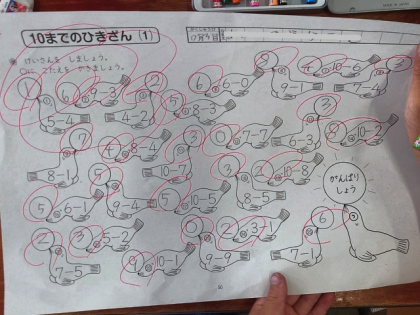 10までのひきざん (1)
けいさんを しましょう。
○に こたえを かきましょう。
1 5-4
6 9-3
2 4-2
5 8-3
6 6-0
4 10-6
3 7-4
7 8-1
4 8-4
3 10-7
0 7-7
3 6-3
8 10-2
5 6-1
5 9-4
5 10-5
3 8-5
2 10-8
がんばり
しょう
2 7-5
3 5-2
9 10-1
0 9-9
2 3-1
6 7-1